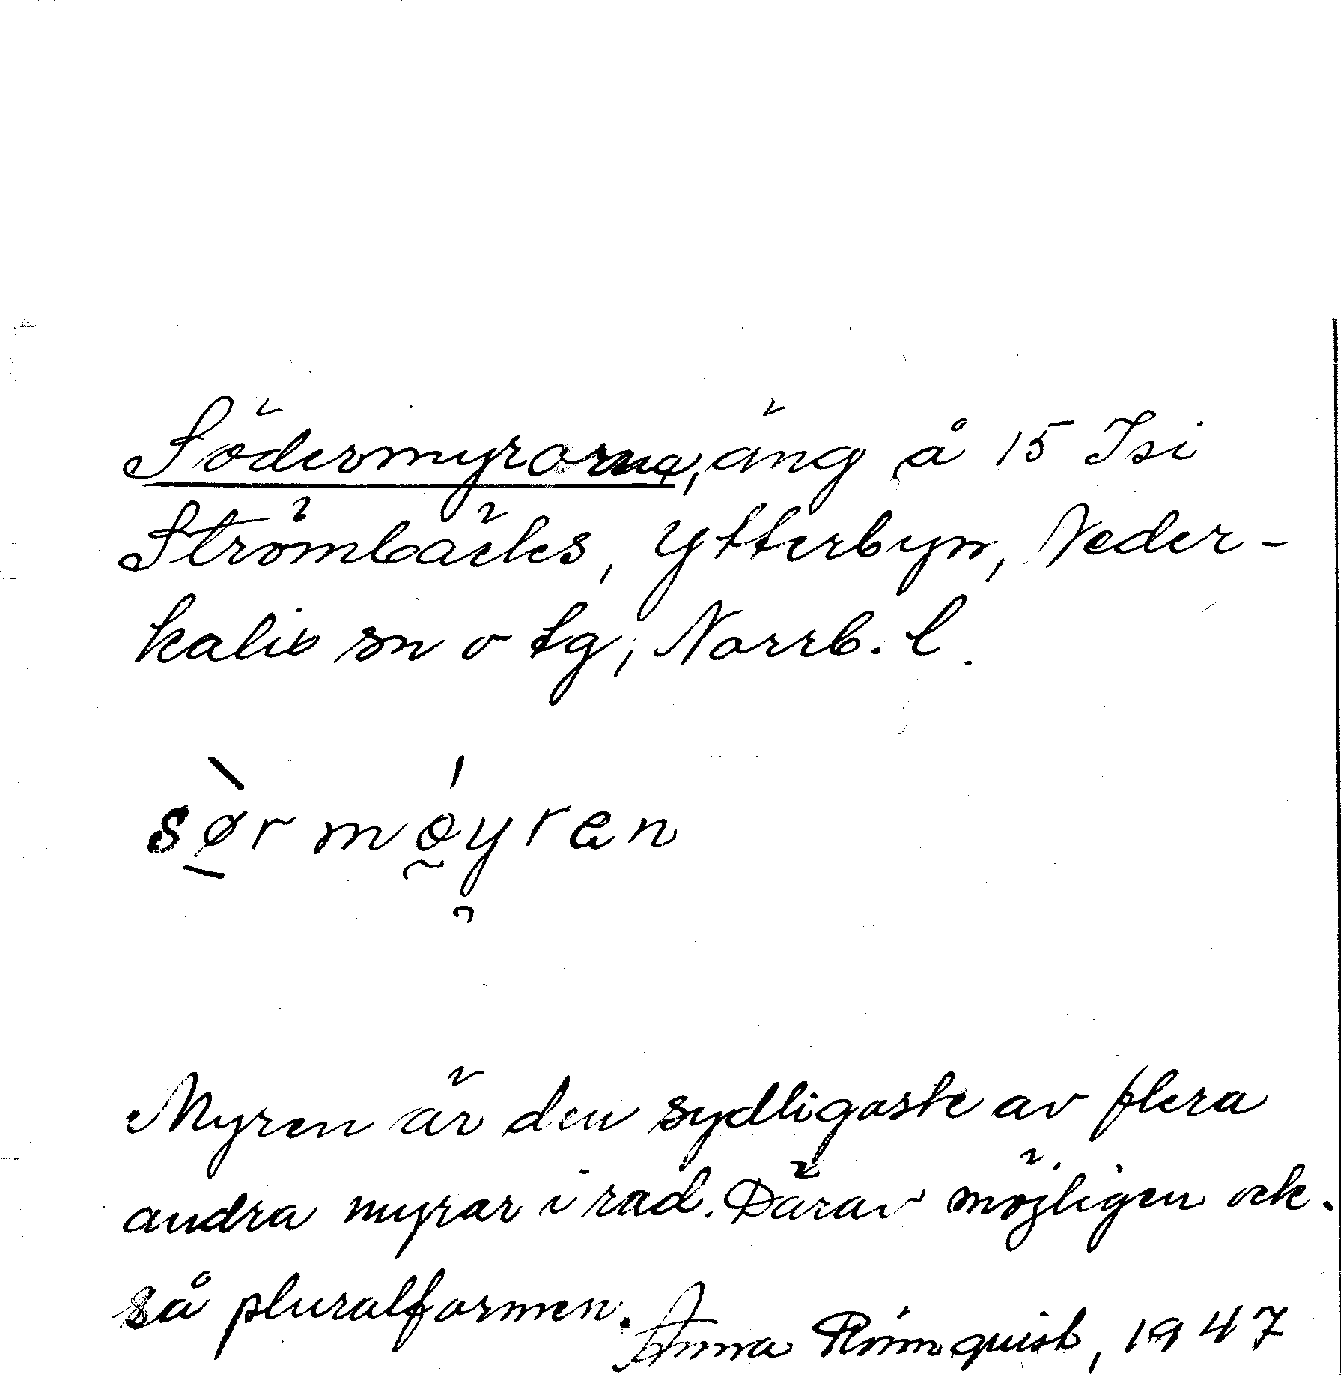 Södermyrorna, äng å 15 Isi
Strömbäcks, Ytterbyn, Neder-
kalix sn o tg, Norrb. l.
sørmøyren
Myren är den sydligaste av flera
andra myrar i rad. Därav möjligen ock-
så pluralformen.
Anna Rönnquist, 1947